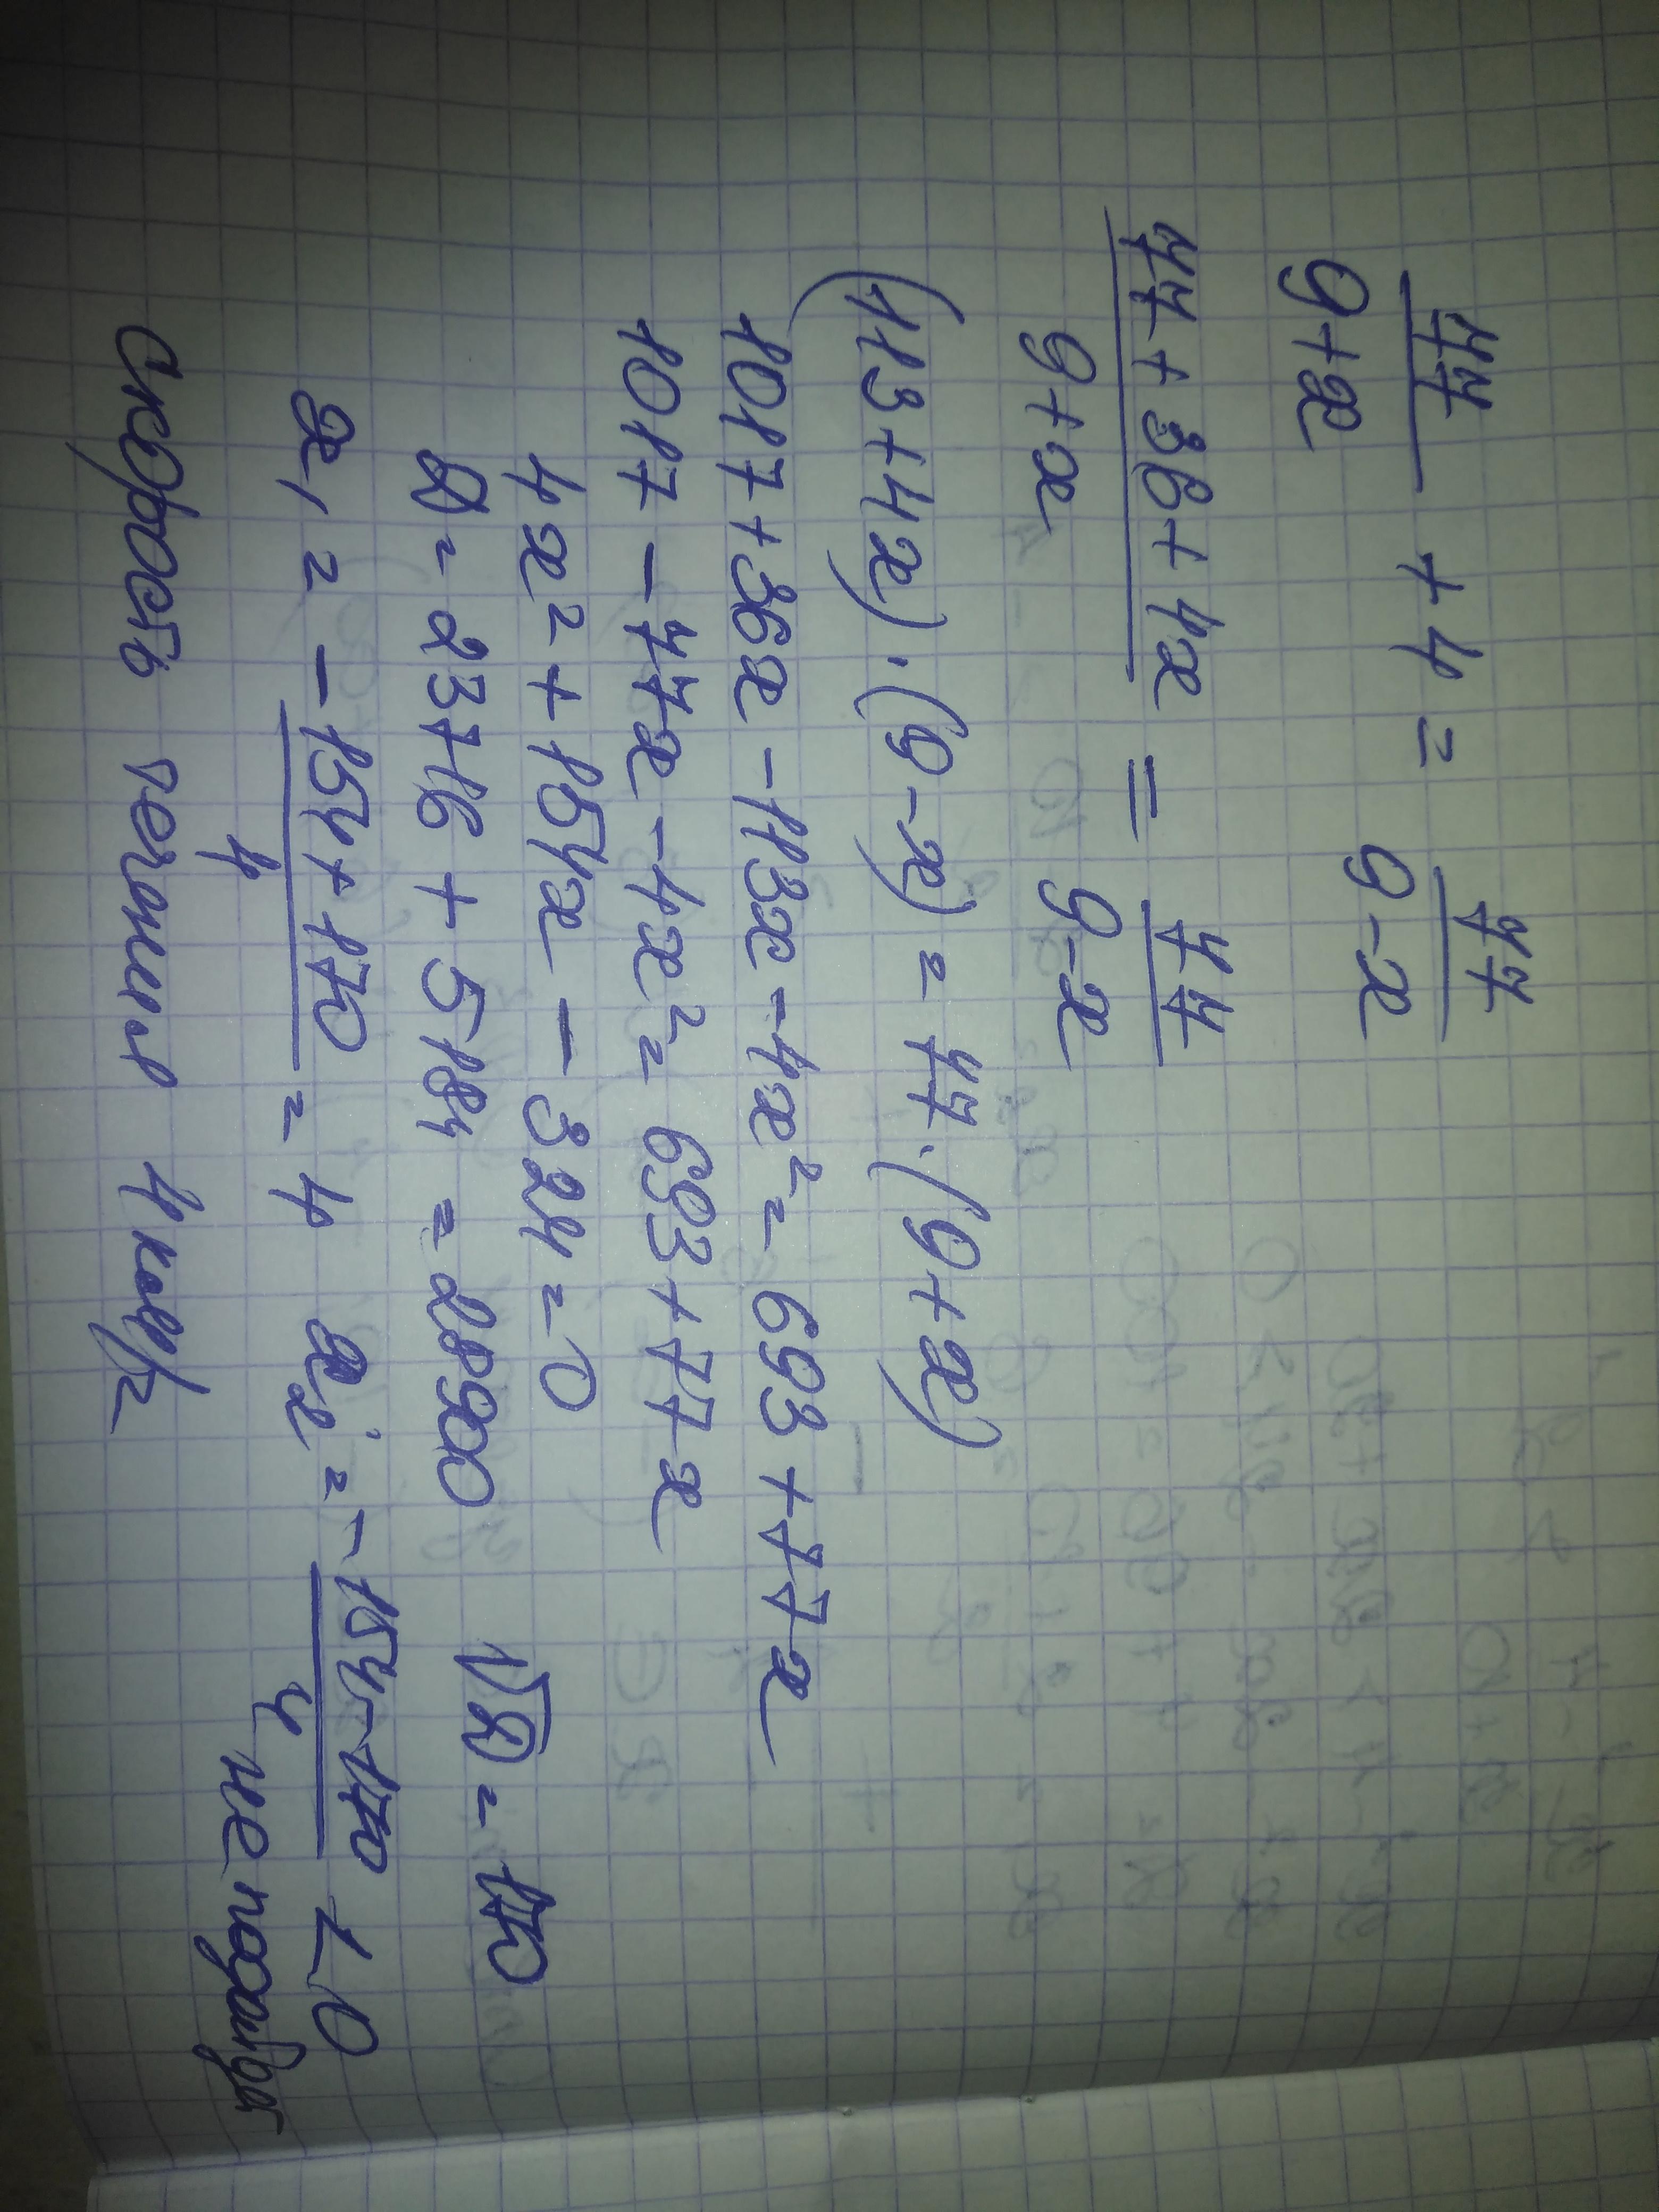 77/(9+x) + 4 = 77/(9-x)
(77+36+4x)/(9+x) = 77/(9-x)
(113+4x)·(9-x) = 77·(9+x)
1017+36x-113x-4x² = 693+77x
1017-77x-4x² = 693+77x
4x²+154x-324=0
D = 23716+5184 = 28900 √D = 170
x₁ = (-154+170)/4 = 4 x₂ = (-154-170)/4 <0
не подойдёт
скорость течения 4 км/ч